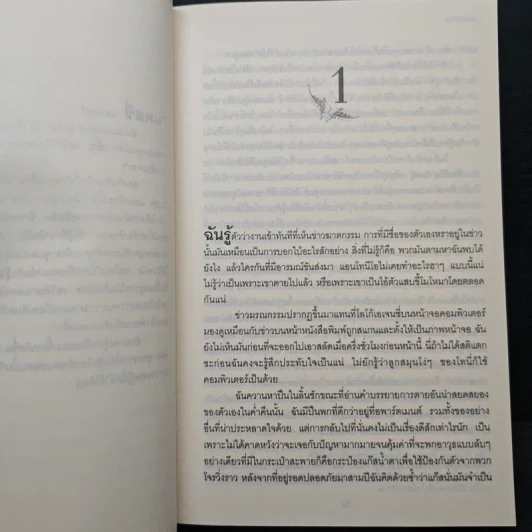 1
ฉันรู้ตัวว่างานเข้าทันทีที่เห็นข่าวฆาตกรรม การที่มีชื่อของตัวเองหราอยู่ในข่าว
นั้นมันเหมือนเป็นการบอกใบ้อะไรสักอย่าง สิ่งที่ไม่รู้ก็คือ พวกมันตามหาฉันพบได้
ยังไง แล้วใครกันที่มีอารมณ์ขันส่งมา แอนโทนีโอไม่เคยทำอะไรฮาๆ แบบนี้แน่
ไม่รู้ว่าเป็นเพราะเขาตายไปแล้ว หรือเพราะเขาเป็นไอ้ตัวแสบขี้โมโหมาโดยตลอด
กันแน่
ข่าวมรณกรรมปรากฏขึ้นมาแทนที่โลโก้เอเจนซี่บนหน้าจอคอมพิวเตอร์
มองดูเหมือนกับข่าวบนหน้าหนังสือพิมพ์ถูกสแกนและตั้งให้เป็นภาพหน้าจอ ฉัน
ยังไม่เห็นมันก่อนที่จะออกไปเอาสลัดเมื่อครึ่งชั่วโมงก่อนหน้านี้ นี่ถ้าไม่ได้สติแตก
ซะก่อนฉันคงจะรู้สึกประทับใจเป็นแน่ ไม่ยักรู้ว่าลูกสมุนโง่ๆ ของโทนี่ก็ใช้
คอมพิวเตอร์เป็นด้วย
ฉันควานหาปืนในลิ้นชักขณะที่อ่านคำบรรยายการตายอันน่าสยดสยอง
ของตัวเองในค่ำคืนนั้น ฉันมีปืนพกที่ดีกว่าอยู่ที่อพาร์ตเมนต์ รวมทั้งของอย่าง
อื่นที่น่าประหลาดใจด้วย แต่การกลับไปที่นั่นคงไม่เป็นเรื่องดีสักเท่าไรนัก เป็น
เพราะไม่ได้คาดหวังว่าจะเจอกับปัญหามากมายจนคุ้มค่าที่จะพกอาวุธแบบลับๆ
อย่างเดียวที่มีในกระเป๋าสะพายก็คือกระป๋องแก๊สน้ำตาเพื่อใช้ป้องกันตัวจากพวก
โจรวิ่งราว หลังจากที่อยู่รอดปลอดภัยมาสามปีฉันคิดด้วยซ้ำว่าแก๊สนั่นมันจำเป็น